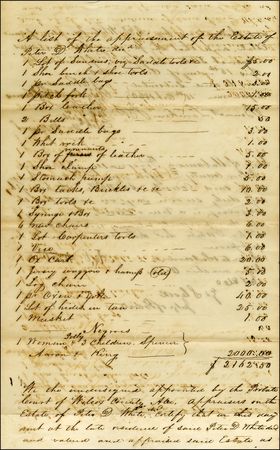 A list of the appraisement of the Estate of
Peter D White, dec
1 Lot of Sundries, viz Saddle tools &c $5.00
1 Shoe bench & shoe tools 2.00
1 pr Saddle bags
1 Patch fork 1.00
1 Box leather 15.00
2 Bells 50
1 pr Saddle bags 3.00
1 Whet rock 1.00
1 Box of remnants of leather 5.00
1 Shoe
1 Stomach pump 5.00
1 Box tacks, Buckles &c &c 10.00
1 Box tools &c 2.00
1 Syringe & Box
6 new chairs 6.00
1 Lot Carpenters tools
1 Vice 6.00
1 Ox Cart 20.00
1 Jersey waggon & harness (old) 5.00
1 Log chain 2.00
1 pr Oxen & yoke 40.00
1 Lot of hides in tan 25.00
1 Musket 1.00
Negroes
1 Woman Polly & 3 Children, Spencer
Aaron & King 2000.00
$ 2162.50
We the undersigned appointed by the Probate
Court of Wilcox County Ala. Appraisers on the
Estate of Peter D White Certify that on this day
met at the late residence of said Peter D White dec
and valued and appraised said Estate as